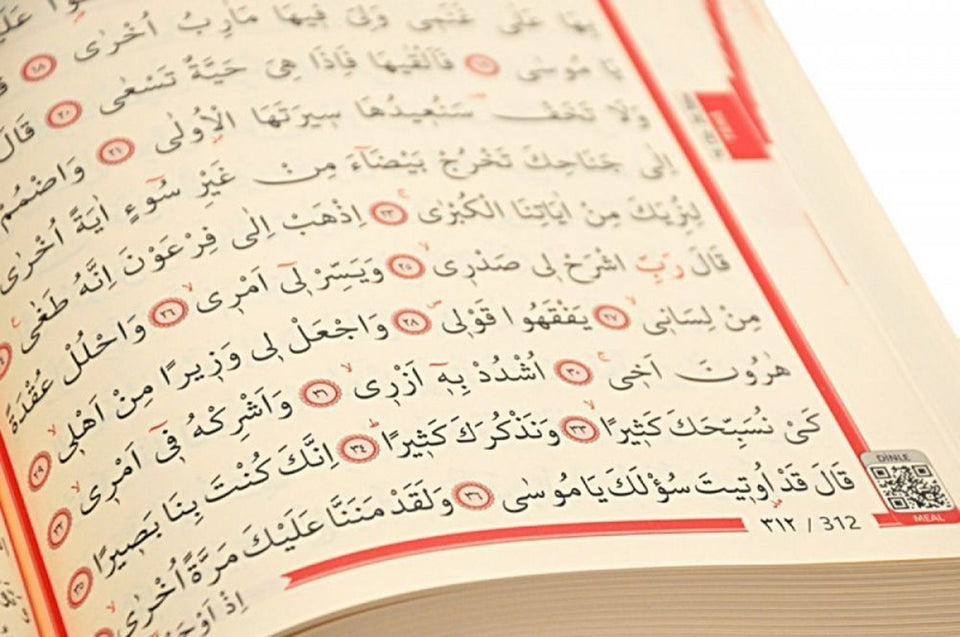 بِهَا عَلٰى غَنَمٖى وَلِىَ فٖيهَا مَاٰرِبُ اُخْرٰى ﴿١٨﴾
يَا مُوسٰى ﴿١٩﴾ فَاَلْقٰيهَا فَاِذَا هِىَ حَيَّةٌ تَسْعٰى ﴿٢٠﴾ قَالَ
وَلَا تَخَفْ سَنُعٖيدُهَا سٖيرَتَهَا الْاُولٰى ﴿٢١﴾ وَاضْمُمْ
اِلٰى جَنَاحِكَ تَخْرُجْ بَيْضَٓاءَ مِنْ غَيْرِ سُٓوءٍ اٰيَةً اُخْرٰى
لِنُرِيَكَ مِنْ اٰيَاتِنَا الْكُبْرٰى ﴿٢٣﴾ اِذْهَبْ اِلٰى فِرْعَوْنَ اِنَّهُ طَغٰى
قَالَ رَبِّ اشْرَحْ لٖى صَدْرٖى ﴿٢٥﴾ وَيَسِّرْ لٖٓى اَمْرٖى ﴿٢٦﴾ وَاحْلُلْ عُقْدَةً
مِنْ لِسَانٖى ﴿٢٧﴾ يَفْقَهُوا قَوْلٖى ﴿٢٨﴾ وَاجْعَلْ لٖى وَزٖيرًا مِنْ اَهْلٖى ﴿٢٩﴾
هٰرُونَ اَخٖى ﴿٣٠﴾ اُشْدُدْ بِهٖٓ اَزْرٖى ﴿٣١﴾ وَاَشْرِكْهُ فٖٓى اَمْرٖى ﴿٣٢﴾
كَىْ نُسَبِّحَكَ كَثٖيرًا ﴿٣٣﴾ وَنَذْكُرَكَ كَثٖيرًا ﴿٣٤﴾ اِنَّكَ كُنْتَ بِنَا بَصٖيرًا ﴿٣٥﴾
قَالَ قَدْ اُوتٖيتَ سُؤْلَكَ يَا مُوسٰى ﴿٣٦﴾ وَلَقَدْ مَنَنَّا عَلَيْكَ مَرَّةً اُخْرٰى
اِذْ
DİNLE
MEAL
٣١٢ / 312